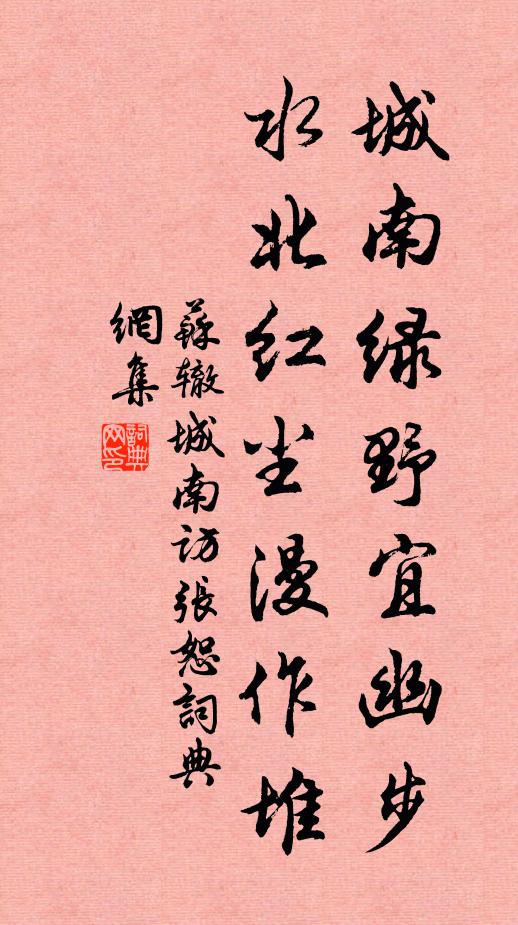 城南绿野宜幽步
水北红尘漫作堆
蘇辙城南访張恕詞典
網集
詞典网印